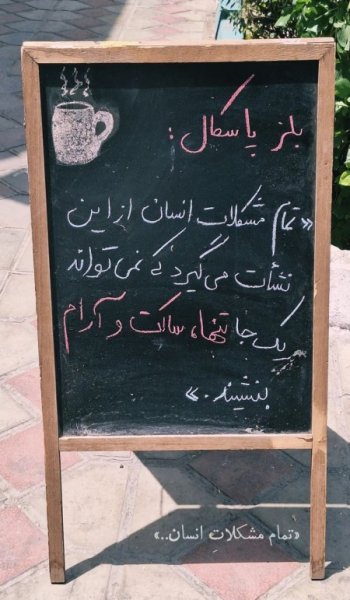 بلز پاسکال:
«تمام مشکلات انسان از این
نشأت می‌گیرد که نمی‌تواند
یک جا تنها، ساکت و آرام
بنشیند.»
«تمام مشکلاتِ انسان..»